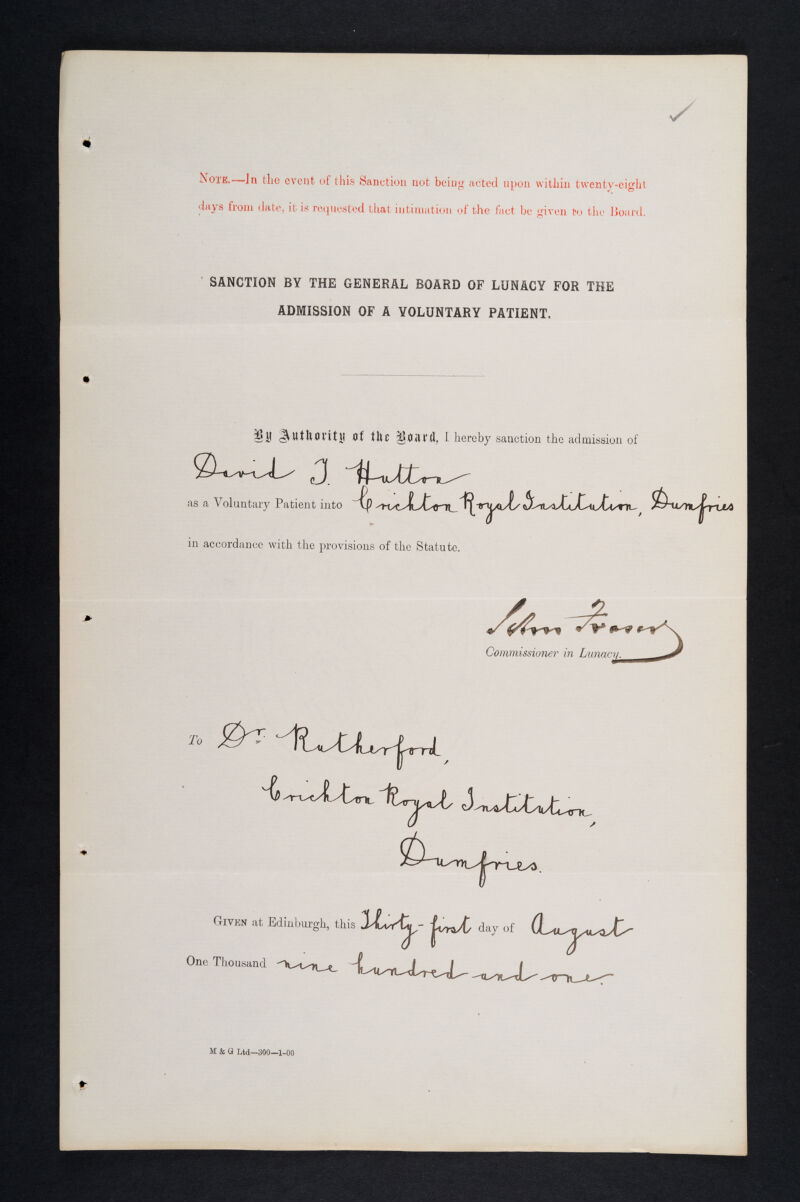 NOTE.—In the event of this Sanction not being acted upon within twenty-eight
days from date, it is requested that intimation of the fact be given to the Board.
SANCTION BY THE GENERAL BOARD OF LUNACY FOR THE
ADMISSION OF A VOLUNTARY PATIENT.
By Authority of the Board, I hereby sanction the admission of
David J. Hutton
as a Voluntary Patient into Crichton Royal Institution, Dumfries
in accordance with the provisions of the Statute.
John Fraser
Commissioner in Lunacy.
To Dr. Rutherford,
Crichton Royal Institution,
Dumfries.
GIVEN at Edinburgh, this Thirty-first day of August
One Thousand nine hundred and one.
M & G Ltd—300—1-00